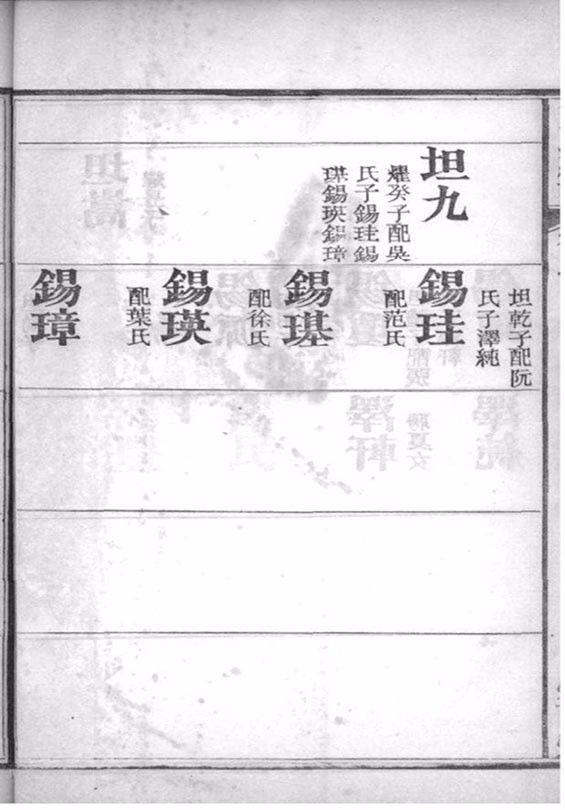 坦九
燿癸子配吳
氏子錫珪錫
璂錫瑛錫璋
坦乾子配阮
氏子澤純
錫珪
配范氏
錫璂
配徐氏
錫瑛
配葉氏
錫璋